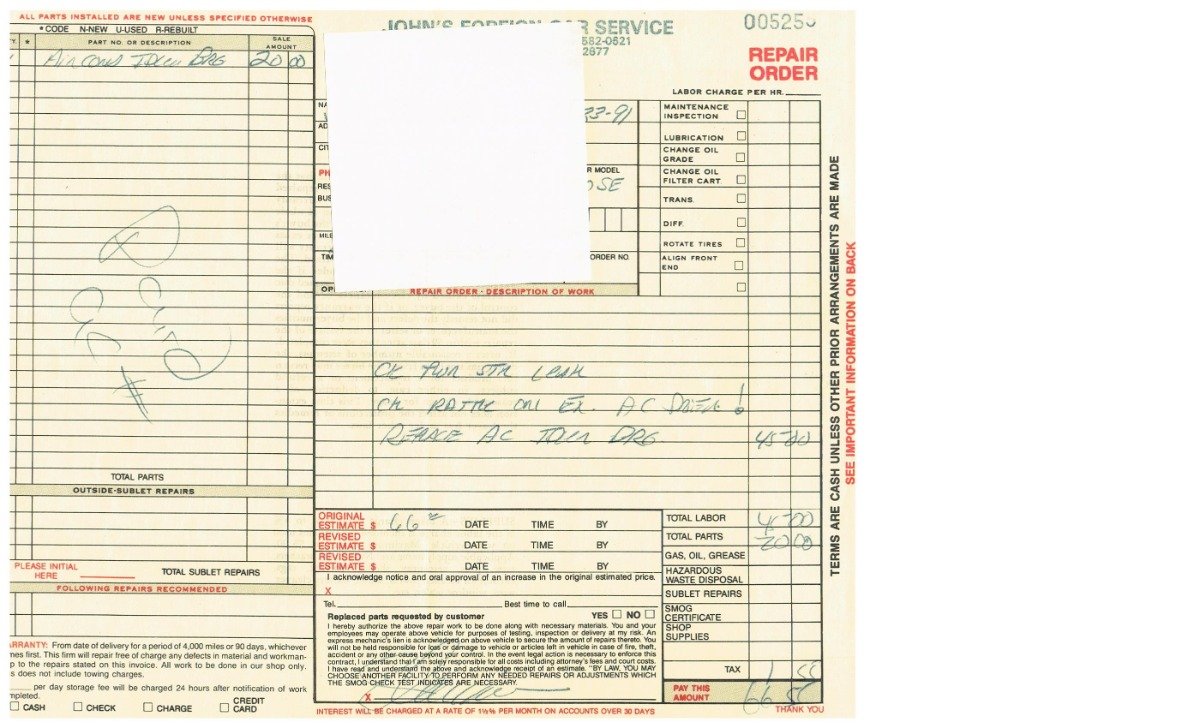 ALL PARTS INSTALLED ARE NEW UNLESS SPECIFIED OTHERWISE
* CODE N-NEW U-USED R-REBUILT
* PART NO. OR DESCRIPTION SALE AMOUNT
20 00
TOTAL PARTS
OUTSIDE-SUBLET REPAIRS
PLEASE INITIAL HERE
TOTAL SUBLET REPAIRS
FOLLOWING REPAIRS RECOMMENDED
From date of delivery for a period of 4,000 miles or 90 days, whichever
first. This firm will repair free of charge any defects in material and workman-
to the repairs stated on this invoice. All work to be done in our shop only.
does not include towing charges.
per day storage fee will be charged 24 hours after notification of work
CASH CHECK CHARGE CREDIT CARD
JOHN'S FOREIGN CAR SERVICE
582-0621
2677
REPAIR
ORDER
LABOR CHARGE PER HR.
MODEL
ORDER NO.
MAINTENANCE INSPECTION
LUBRICATION
CHANGE OIL GRADE
CHANGE OIL FILTER CART.
TRANS.
DIFF.
ROTATE TIRES
ALIGN FRONT END
REPAIR ORDER - DESCRIPTION OF WORK
CK PWR STR LEAK
REPLACE AC 45 00
ORIGINAL ESTIMATE $ 66 DATE TIME BY
REVISED ESTIMATE $ DATE TIME BY
REVISED ESTIMATE $ DATE TIME BY
I acknowledge notice and oral approval of an increase in the original estimated price.
X
Tel. Best time to call
Replaced parts requested by customer YES NO
I hereby authorize the above repair work to be done along with necessary materials. You and your
employees may operate above vehicle for purposes of testing, inspection or delivery at my risk. An
express mechanic's lien is acknowledged on above vehicle to secure the amount of repairs thereto. You
will not be held responsible for loss or damage to vehicle or articles left in vehicle in case of fire, theft,
accident or any other cause beyond your control. In the event legal action is necessary to enforce this
contract, I understand that I am solely responsible for all costs including attorney's fees and court costs.
I have read and understand the above and acknowledge receipt of an estimate. "BY LAW, YOU MAY
CHOOSE ANOTHER FACILITY TO PERFORM ANY NEEDED REPAIRS OR ADJUSTMENTS WHICH
THE SMOG CHECK TEST INDICATES ARE NECESSARY.
X
INTEREST WILL BE CHARGED AT A RATE OF 1½% PER MONTH ON ACCOUNTS OVER 30 DAYS
TOTAL LABOR 45 00
TOTAL PARTS 20 00
GAS, OIL, GREASE
HAZARDOUS WASTE DISPOSAL
SUBLET REPAIRS
SMOG CERTIFICATE
SHOP SUPPLIES
TAX
PAY THIS AMOUNT
THANK YOU
TERMS ARE CASH UNLESS OTHER PRIOR ARRANGEMENTS ARE MADE
SEE IMPORTANT INFORMATION ON BACK